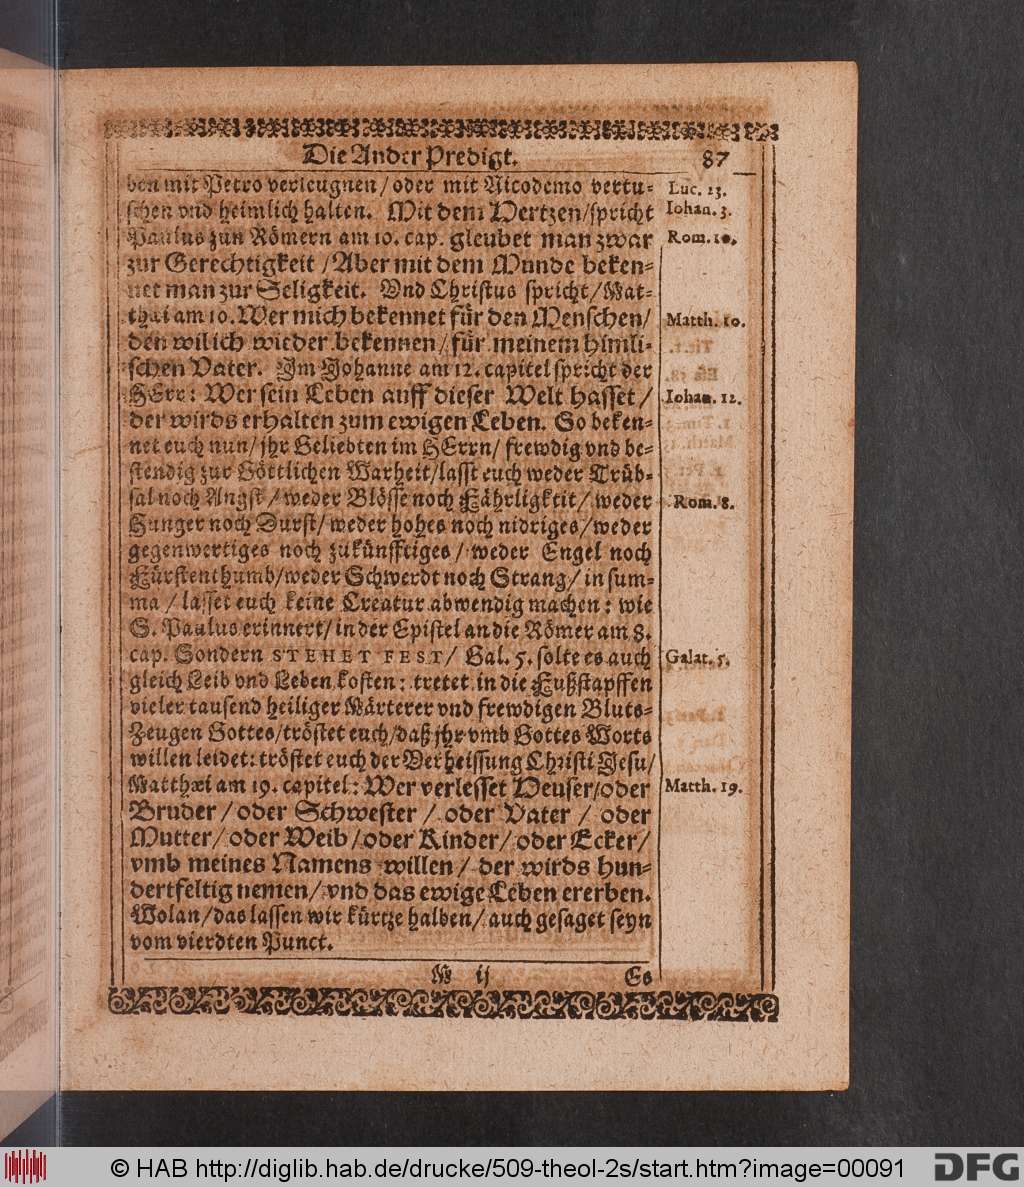 Die Ander Predigt. 87
ben mit Petro verleugnen/ oder mit Nicodemo vertu-
schen vnd heimlich halten. Mit dem Hertzen/ spricht
Paulus zun Römern am 10. cap. gleubet man zwar
zur Gerechtigkeit / Aber mit dem Munde beken-
net man zur Seligkeit. Vnd Christus spricht/ Mat-
thæi am 10. Wer mich bekennet für den Menschen/
den wil ich wieder bekennen/ für meinem himli-
schen Vater. Im Johanne am 12. capitel spricht der
HErr: Wer sein Leben auff dieser Welt hasset/
der wirds erhalten zum ewigen Leben. So beken-
net euch nun/ jhr Geliebten im HErrn/ frewdig vnd be-
stendig zur Göttlichen Warheit/ lasst euch weder Trüb-
sal noch Angst/ weder Blösse noch Fährligkeit/ weder
Hunger noch Durst/ weder hohes noch nidriges/ weder
gegenwertiges noch zukünfftiges/ weder Engel noch
Fürstenthumb/ weder Schwerdt noch Strang/ in sum-
ma / lasset euch keine Creatur abwendig machen: wie
S. Paulus erinnert/ in der Epistel an die Römer am 8.
cap. Sondern STEHET FEST/ Gal. 5. solte es auch
gleich Leib vnd Leben kosten: tretet in die Fußstapffen
vieler tausend heiliger Märterer vnd frewdigen Bluts-
Zeugen Gottes/ tröstet euch/ daß jhr vmb Gottes Worts
willen leidet: tröstet euch der Verheissung Christi Jesu/
Matthæi am 19. capitel: Wer verlesset Heuser/ oder
Bruder / oder Schwester / oder Vater / oder
Mutter/ oder Weib / oder Kinder/ oder Ecker/
vmb meines Namens willen/ der wirds hun-
dertfeltig nemen/ vnd das ewige Leben ererben.
Wolan/ das lassen wir kürtze halben/ auch gesaget seyn
vom vierdten Punct.
M ij Es
Luc. 23.
Iohan. 3.
Rom. 10.
Matth. 10.
Iohan. 12.
Rom. 8.
Galat. 5.
Matth. 19.
© HAB http://diglib.hab.de/drucke/509-theol-2s/start.htm?image=00091
DFG